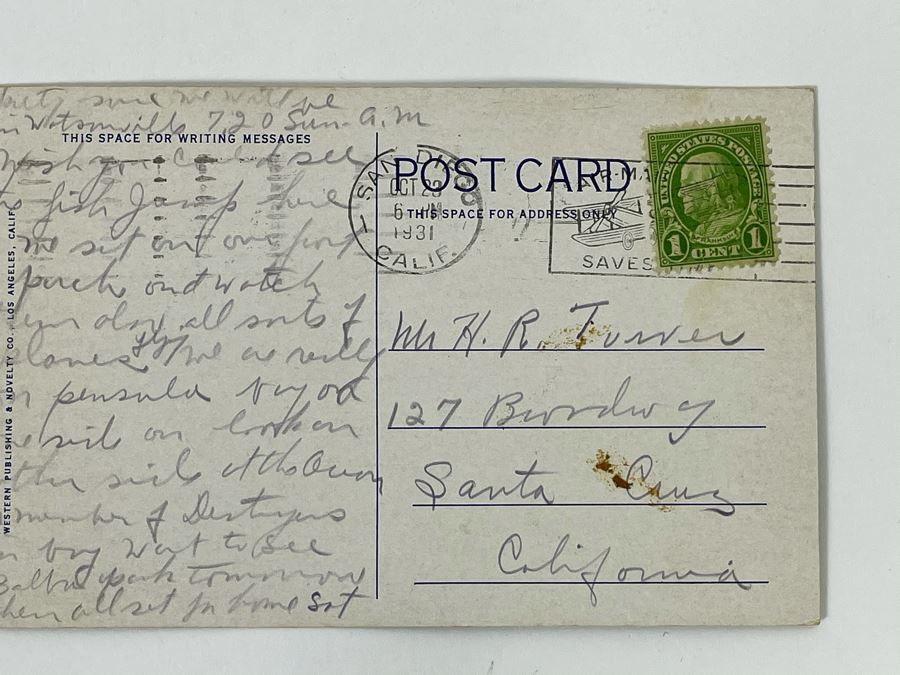 sure we will be
Watsonville 7 20 Sun. A.M
THIS SPACE FOR WRITING MESSAGES
wish you could see
fish Jump here
we sit out on front
porch and watch
all sorts of
planes We are really
bay on
side on look on
other side at the Ocean
number of Destroyers
bay Want to see
Balboa park tomorrow
then all set for home Sat
WESTERN PUBLISHING & NOVELTY CO., LOS ANGELES, CALIF.
POST CARD
THIS SPACE FOR ADDRESS ONLY
SAN DIEGO
OCT 23
6 PM
1931
CALIF.
SAVES
UNITED STATES POSTAGE
FRANKLIN
1 CENT 1
Mr H. R. Turner
127 Broadway
Santa Cruz
California